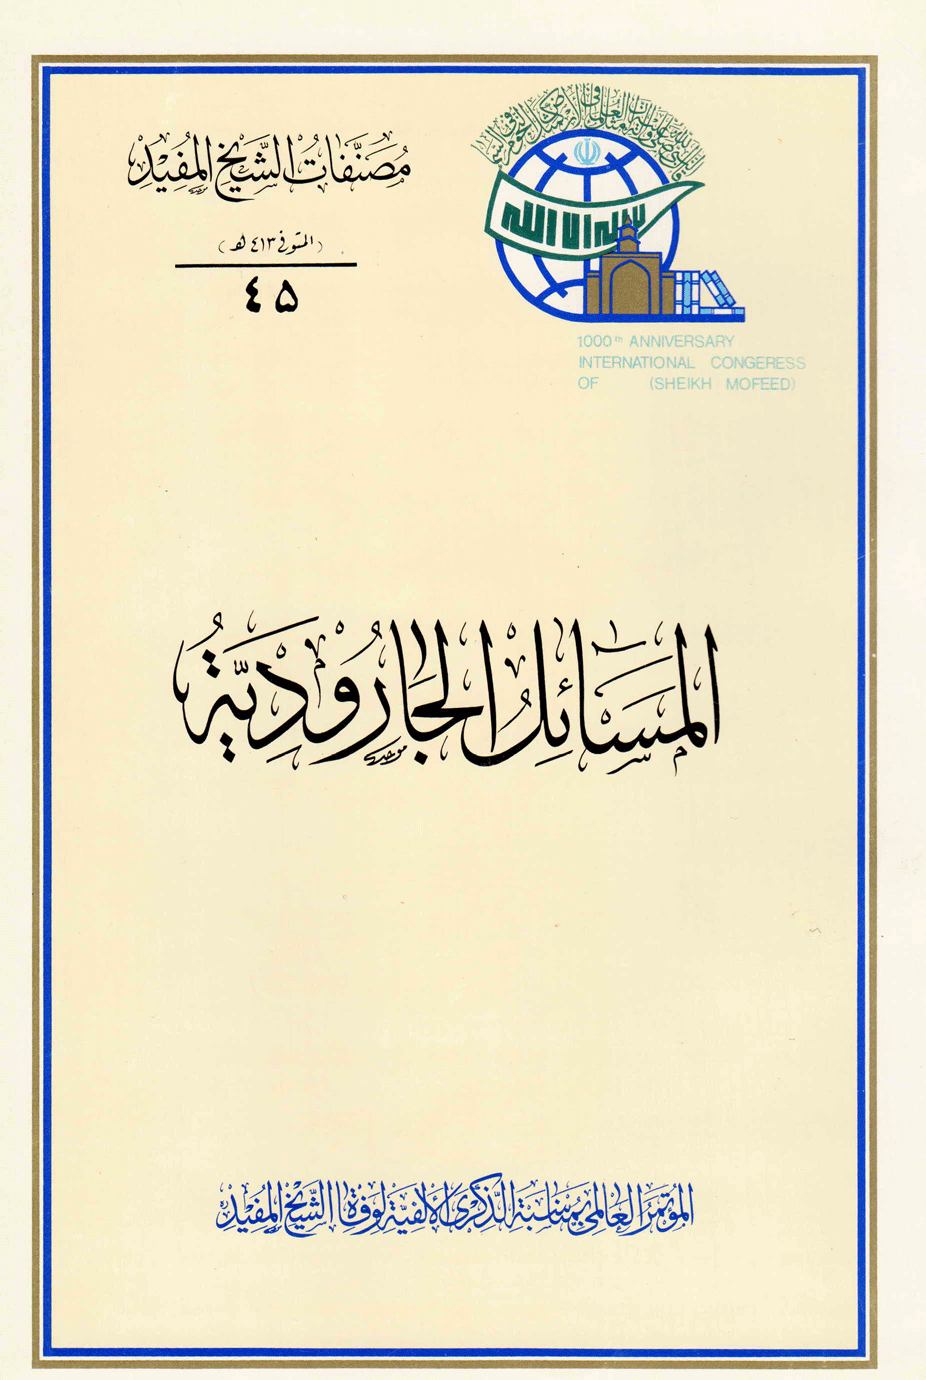 مُصَنَّفَاتُ الشَّيْخِ المُفِيْدِ
(المتوفى ٤١٣ ه‍)
٤٥
لا إله إلا الله
1000th ANNIVERSARY
INTERNATIONAL CONGERESS
OF (SHEIKH MOFEED)
المَسَائِلُ الجَارُودِيَّةُ
المُؤتَمَرُ العَالَمِيُّ بِمُنَاسَبَةِ الذِّكْرَى الأَلفِيَّةِ لِوَفَاةِ الشَّيْخِ المُفِيْدِ